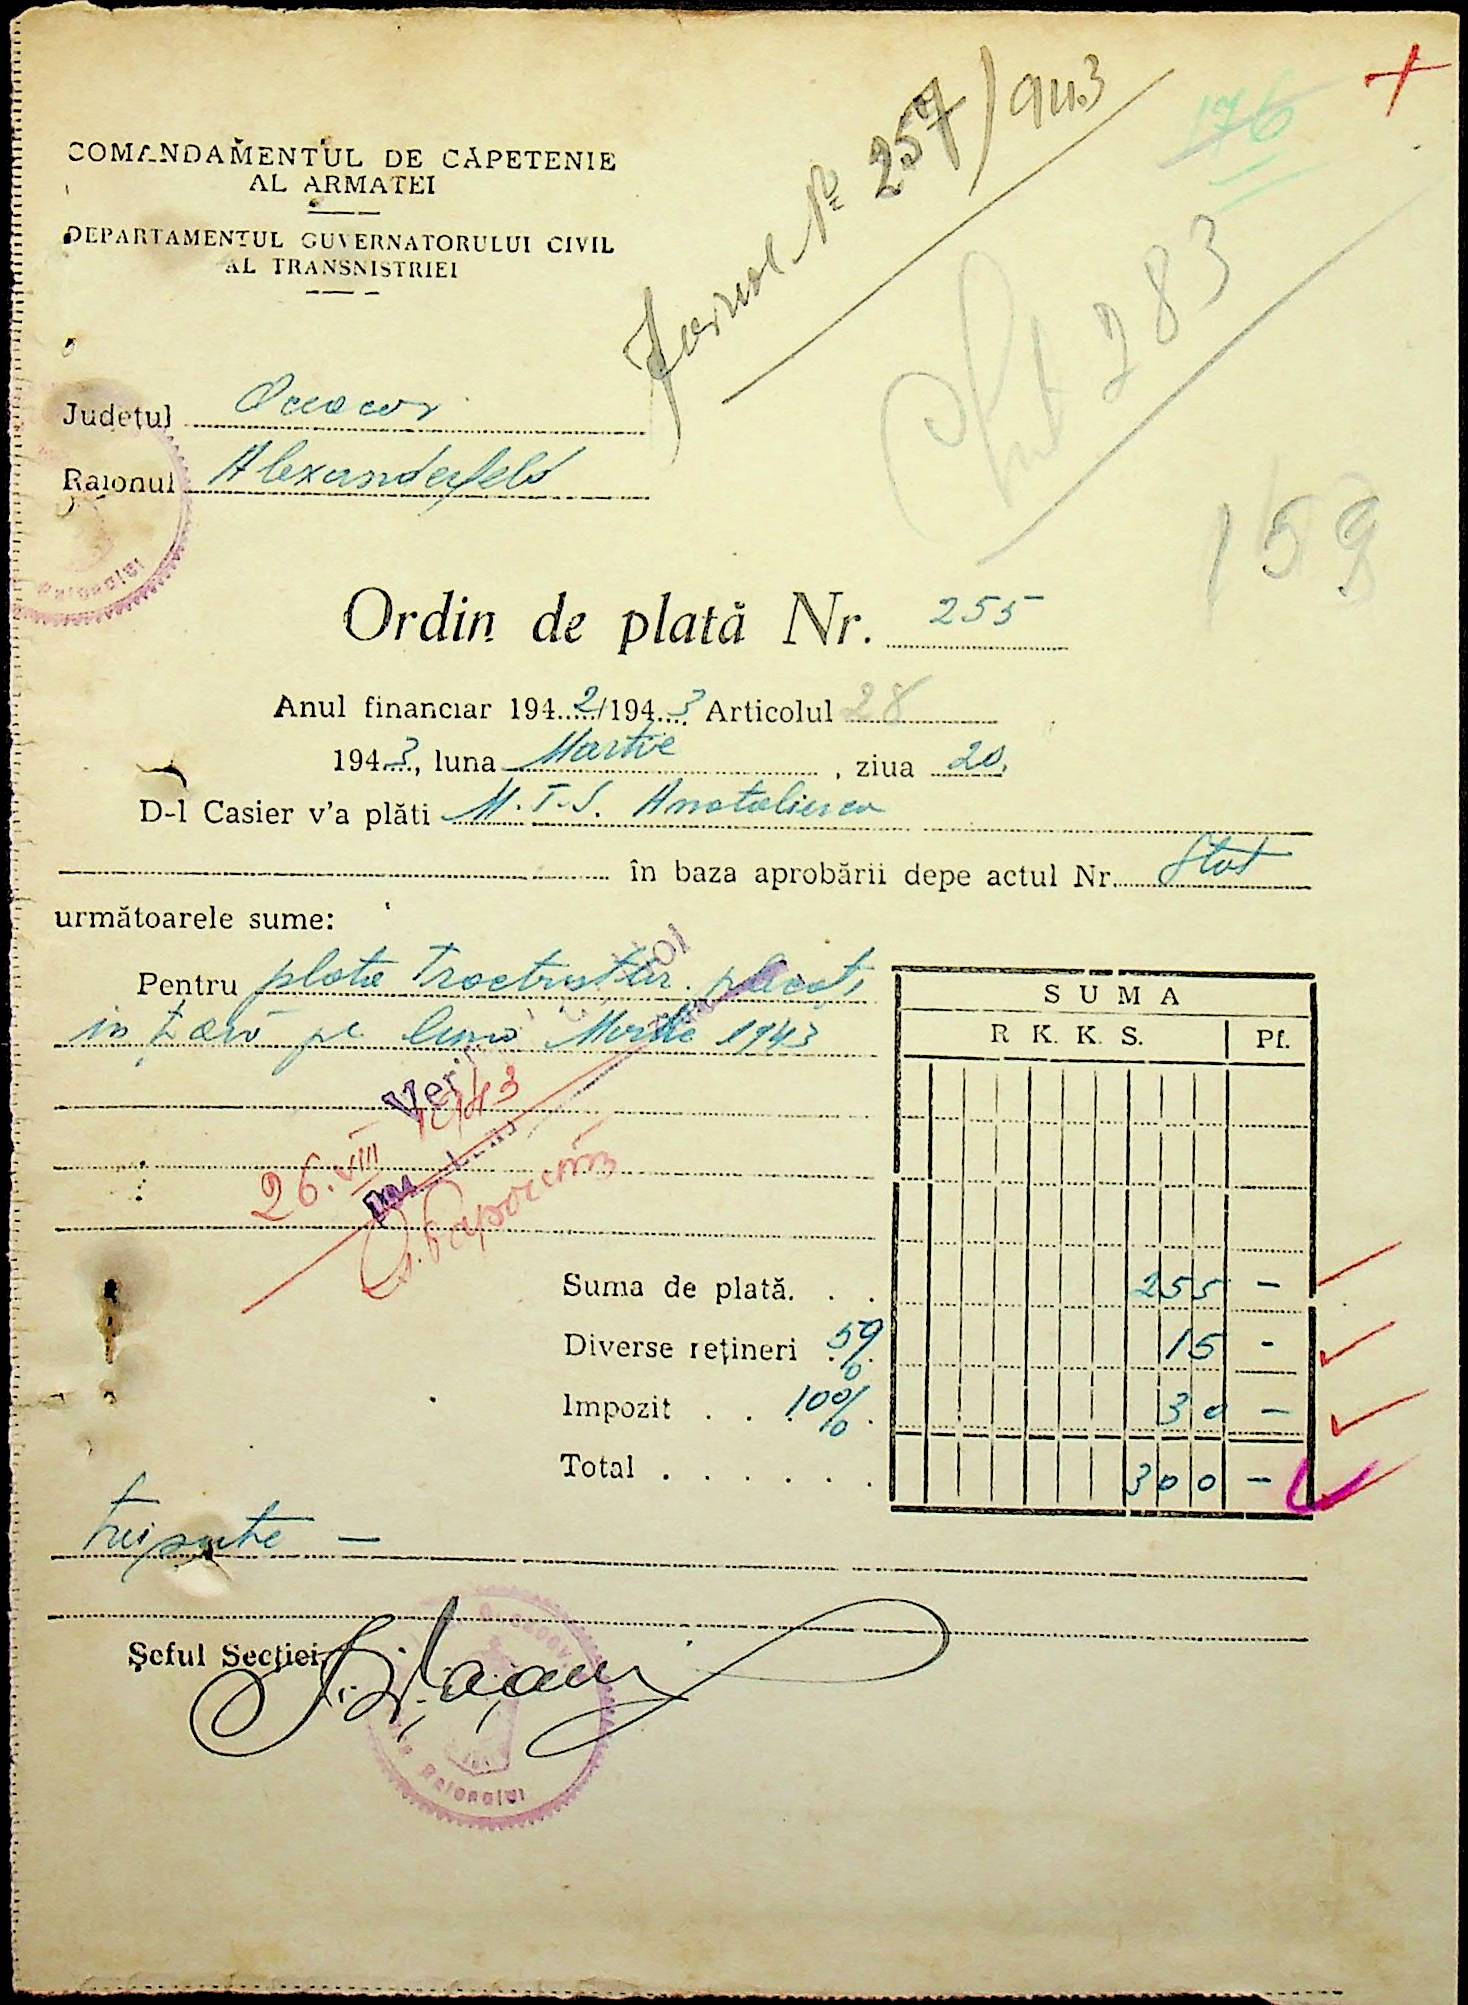 Jurnal № 257/943
176
Chit 283
159
COMANDAMENTUL DE CĂPETENIE
AL ARMATEI
DEPARTAMENTUL GUVERNATORULUI CIVIL
AL TRANSNISTRIEI
Județul Oceacov
Raionul Alexanderfeld
Raionului
Ordin de plată Nr. 255
Anul financiar 1942/1943 Articolul 28
1943, luna Martie, ziua 20.
D-l Casier v'a plăti M.T.S. Anatolievca
în baza aprobării depe actul Nr. Stat
următoarele sume:
Pentru plata tractoristilor plecați
în țară pe luna Martie 1943
26.VIII 1943
SUMA
R K. K S. Pf.
Suma de plată. . . 255 -
Diverse rețineri 5% 15 -
Impozit . . 10% . 30 -
Total . . . . . . 300 -
trei sute —
Șeful Secției,
Raionului